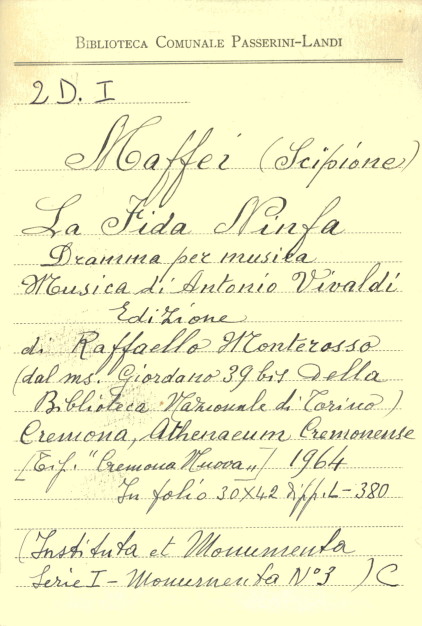 BIBLIOTECA COMUNALE PASSERINI-LANDI
2 D. I
Maffei (Scipione)
La Fida Ninfa
Dramma per musica
Musica di Antonio Vivaldi
Edizione
di Raffaello Monterosso
(dal ms. Giordano 39 bis della
Biblioteca Nazionale di Torino)
Cremona, Athenaeum Cremonense
[Tip. "Cremona Nuova„] 1964
In folio 30X42 di pp. L-380
(Instituta et Monumenta
Serie I - Monumenta N° 3 ) C